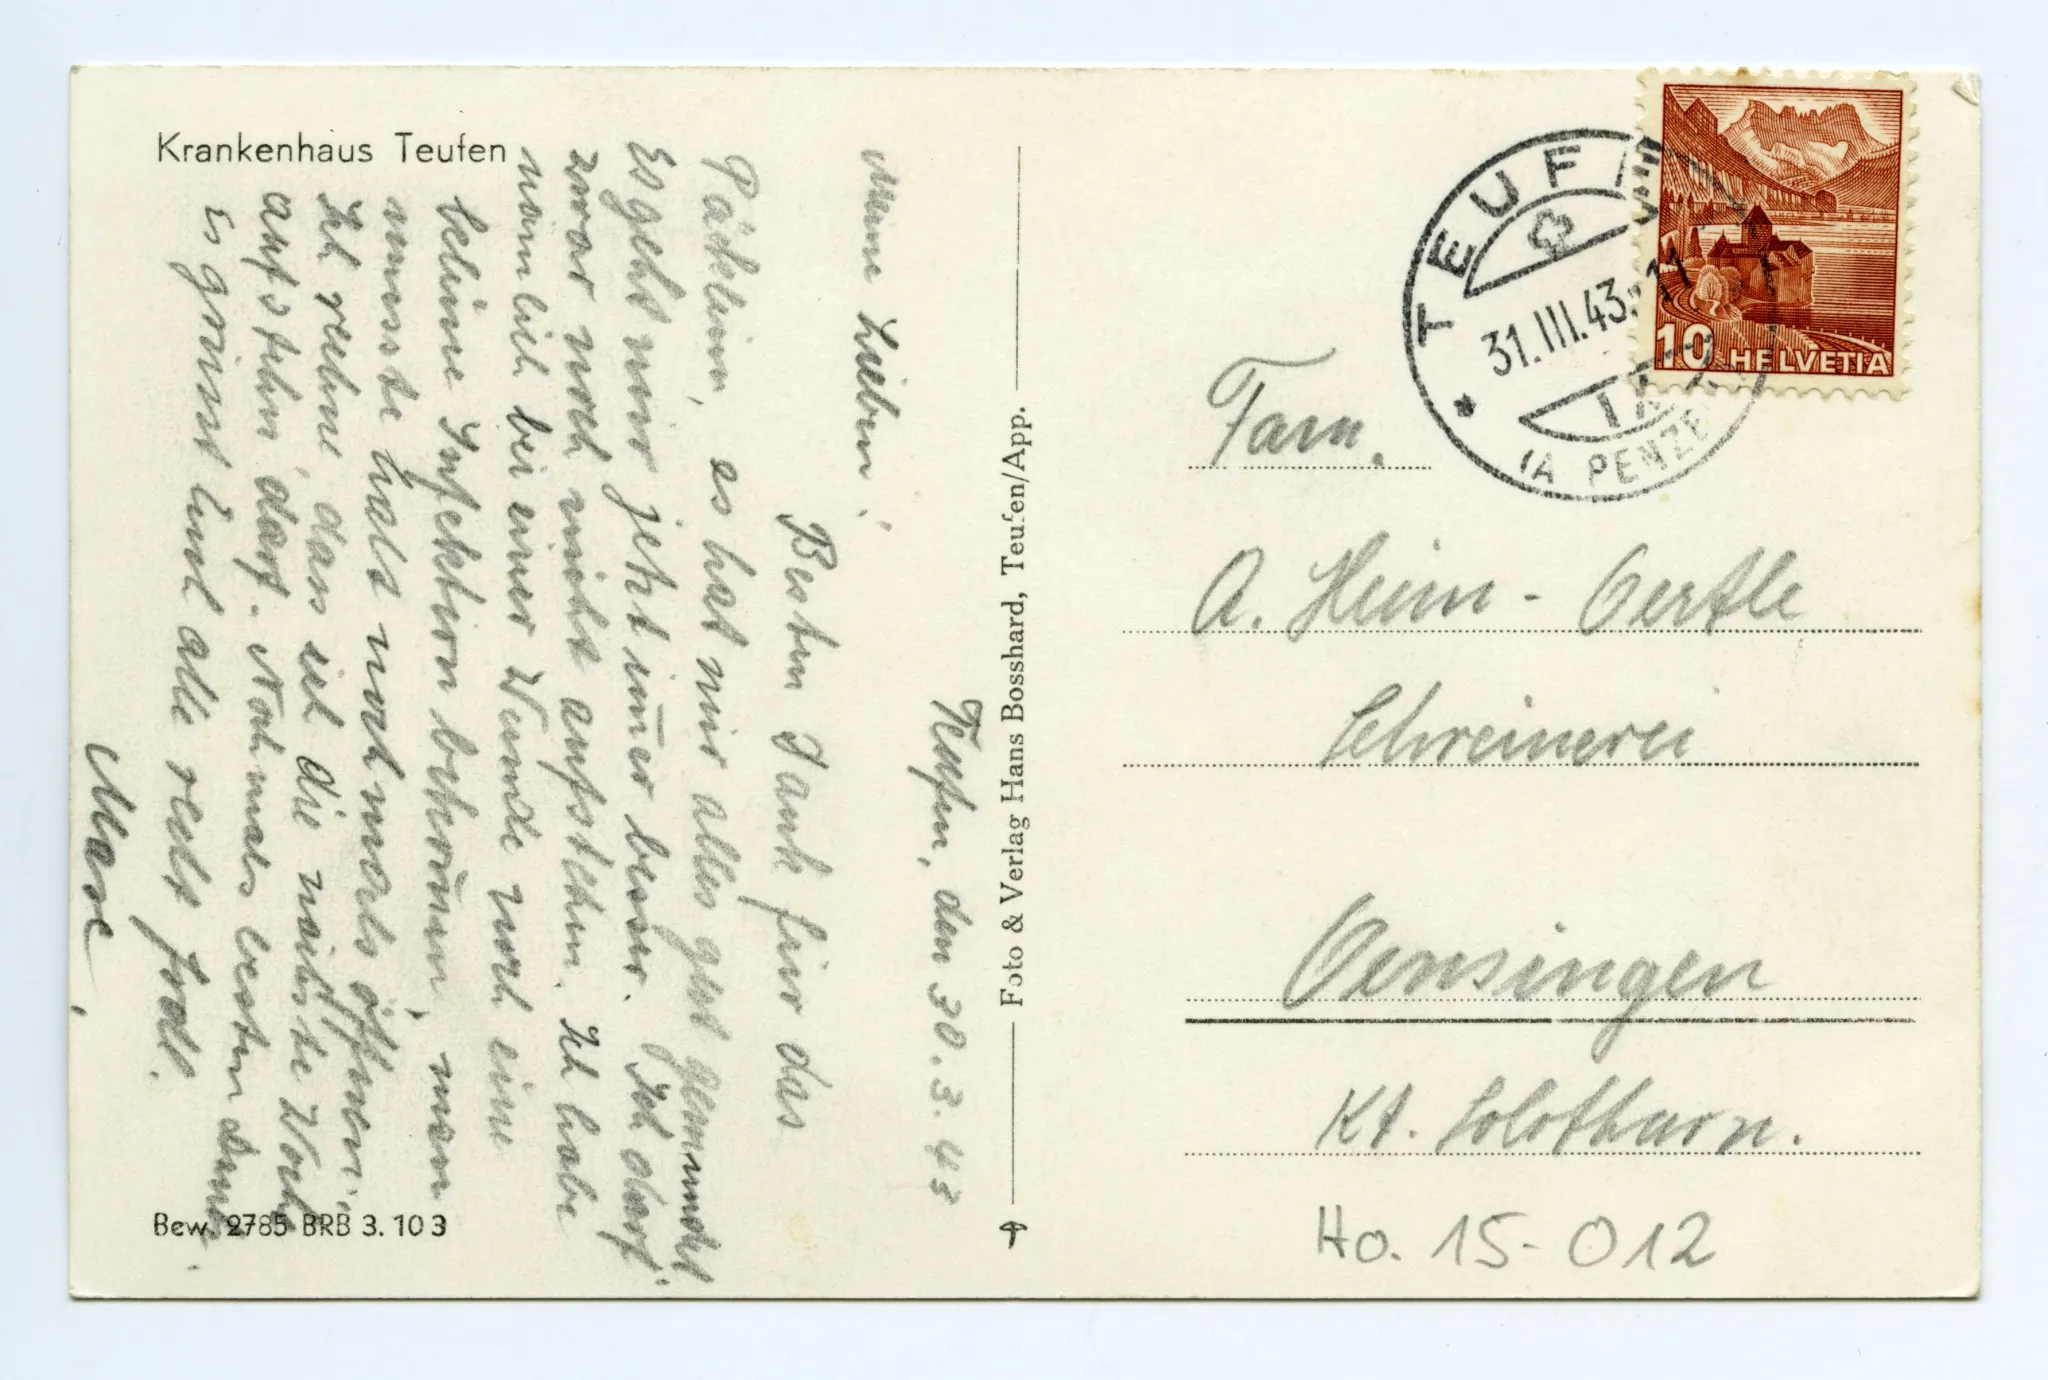 Krankenhaus Teufen
Teufen, den 30. 3. 43
Meine Lieben!
Besten Dank für das
Päcklein, es hat mir alles gut gemundet.
Es geht mir jetzt im̄er besser. Ich darf
zwar noch nicht aufstehn. Ich habe
nämlich bei einer Wunde noch eine
kleine Infecktion bekom̄en, man
musste hals nochmals öffnen.
Ich rechne, dass ich die nächste Woche
aufstehn darf. Nochmals besten Dank.
Es grüsst Euch alle recht froh.
Bew. 2785 BRB 3. 10 3
Foto & Verlag Hans Bosshard, Teufen/App.
TEUFEN
31.III.43.-11
(APPENZELL
10 HELVETIA
Fam.
A. Heim-Oertle
Schreinerei
Oensingen
Kt. Solothurn.
Ho. 15-012